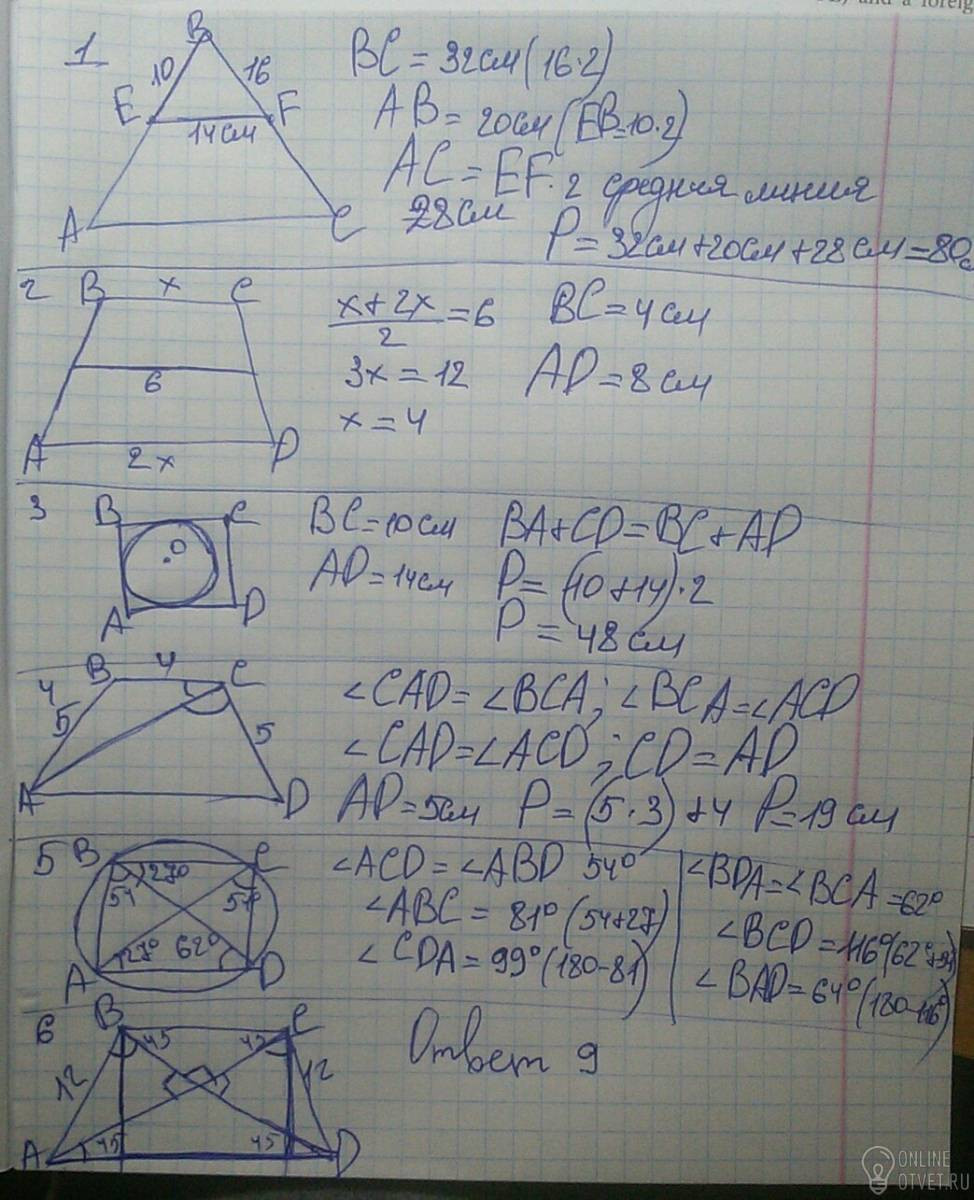 B) and a foreig
1
B
10
16
E
F
14см
A
C
BC = 32см (16·2)
AB = 20см (EB=10·2)
AC = EF·2 средняя линия
28см
P = 32см+20см+28см=80с
2
B x C
6
A 2x D
x+2x/2 = 6
3x = 12
x = 4
BC = 4 см
AD = 8 см
3
B C
O
A D
BC = 10 см
AD = 14 см
BA+CD = BC+AD
P = (10+14)·2
P = 48 см
4
B 4 C
5
5
A D
∠CAD = ∠BCA; ∠BCA = ∠ACD
∠CAD = ∠ACD; CD = AD
AD = 5см P = (5·3)+4 P = 19 см
5
B C
27°
54
54
27° 62°
A D
∠ACD = ∠ABD 54°
∠ABC = 81° (54+27)
∠CDA = 99° (180-81)
∠BDA = ∠BCA = 62°
∠BCD = 116°(62°+54)
∠BAD = 64° (180-116°)
6
B C
45 45
12 12
A 45 45 D
Ответ 9
ONLINE
OTVET.RU